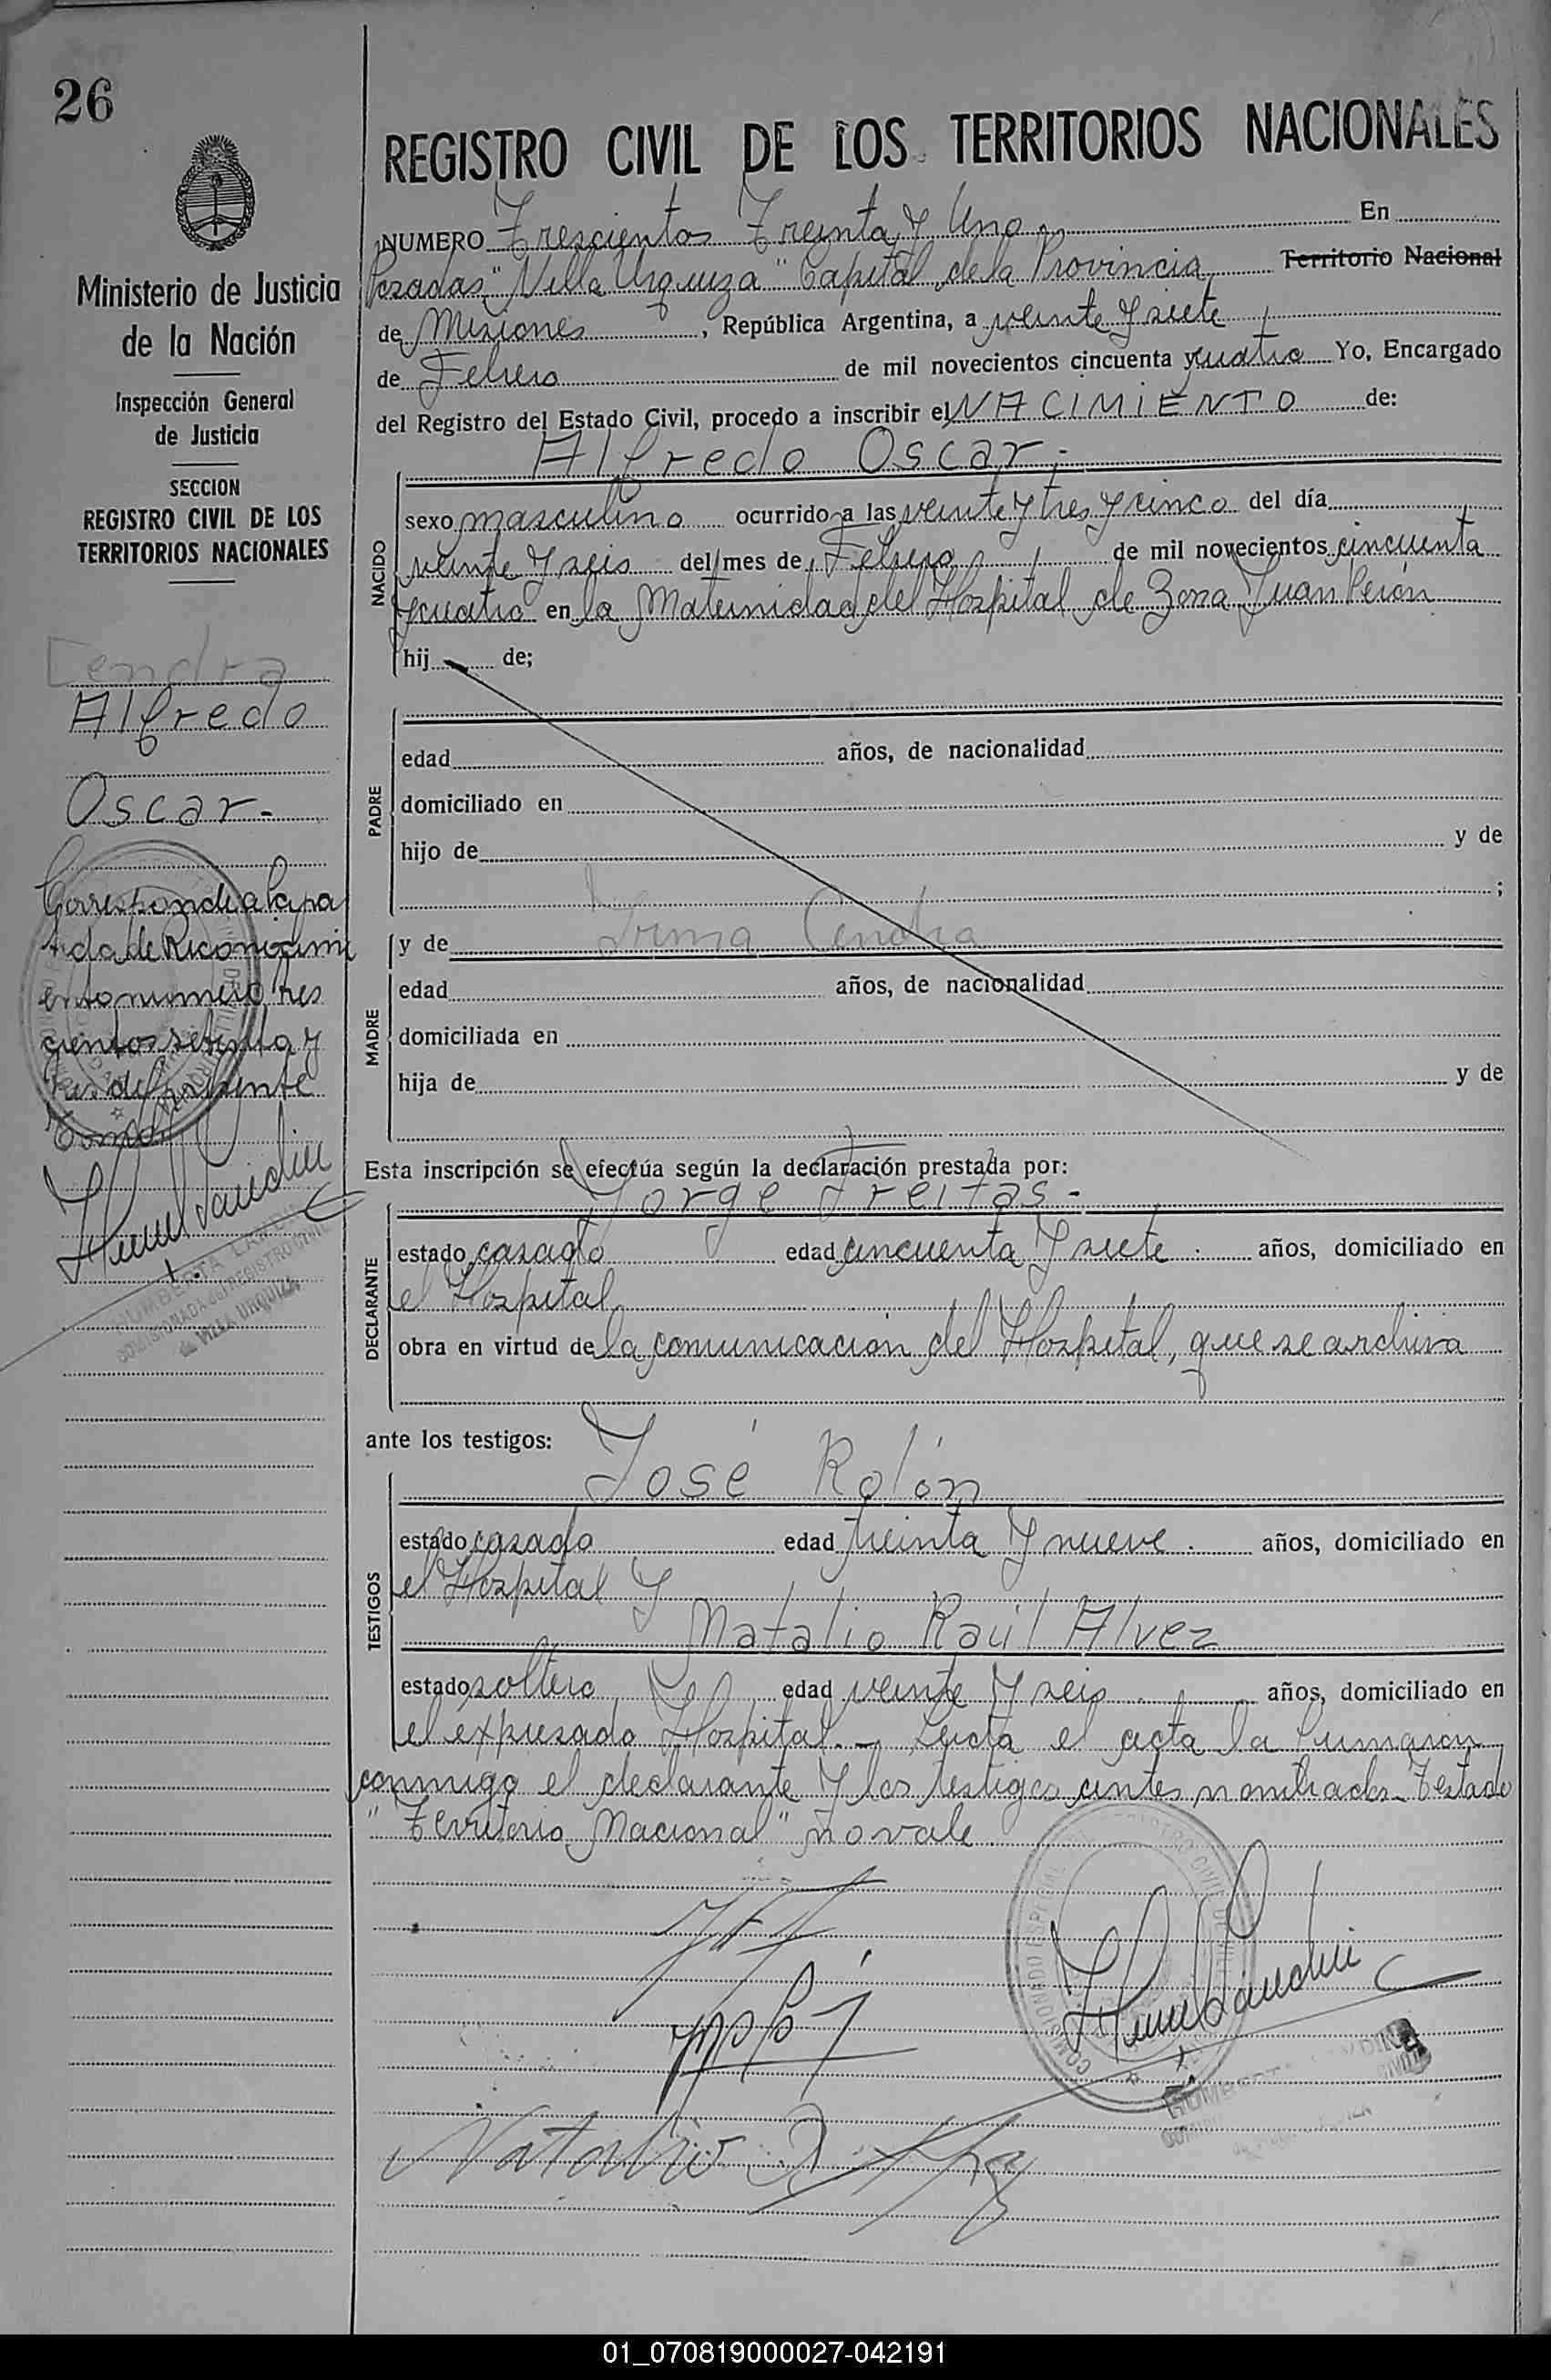 26
Ministerio de Justicia
de la Nación
Inspección General
de Justicia
SECCION
REGISTRO CIVIL DE LOS
TERRITORIOS NACIONALES
Cendra
Alfredo
Oscar-
Corresponde a la par
tida de Reconocimi
ento numero tres
cientos setenta y
tres del presente
Tomo
REGISTRO CIVIL DE LOS TERRITORIOS NACIONALES
NUMERO Trescientos Treinta y Uno En
Posadas, "Villa Urquiza" Capital de la Provincia Territorio Nacional
de Misiones, República Argentina, a veinte y siete
de Febrero de mil novecientos cincuenta y cuatro Yo, Encargado
del Registro del Estado Civil, procedo a inscribir el NACIMIENTO de:
Alfredo Oscar.-
NACIDO
sexo masculino ocurrido a las veinte y tres y cinco del día
veinte y seis del mes de Febrero de mil novecientos cincuenta
y cuatro en la Maternidad del Hospital de Zona Juan Perón
hij de;
PADRE
edad años, de nacionalidad
domiciliado en
hijo de y de
;
y de Irma Cendra
MADRE
edad años, de nacionalidad
domiciliada en
hija de y de
Esta inscripción se efectúa según la declaración prestada por:
Jorge Freitas-
DECLARANTE
estado casado edad cincuenta y siete. años, domiciliado en
el Hospital
obra en virtud de la comunicación del Hospital, que se archiva
ante los testigos:
José Rolón
TESTIGOS
estado casado edad treinta y nueve. años, domiciliado en
el Hospital y
Natalio Raúl Alvez
estado soltero edad veinte y seis años, domiciliado en
el expresado Hospital.- Leida el acta la firmaron
conmigo el declarante y los testigos antes nombrados. Testado
"Territorio Nacional" no vale
01_070819000027-042191